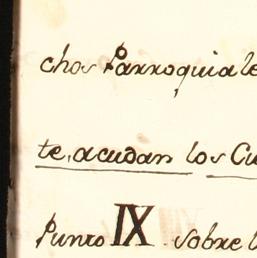 chos Parroquiale
te, acudan los Cu
Punto IX. sobre l